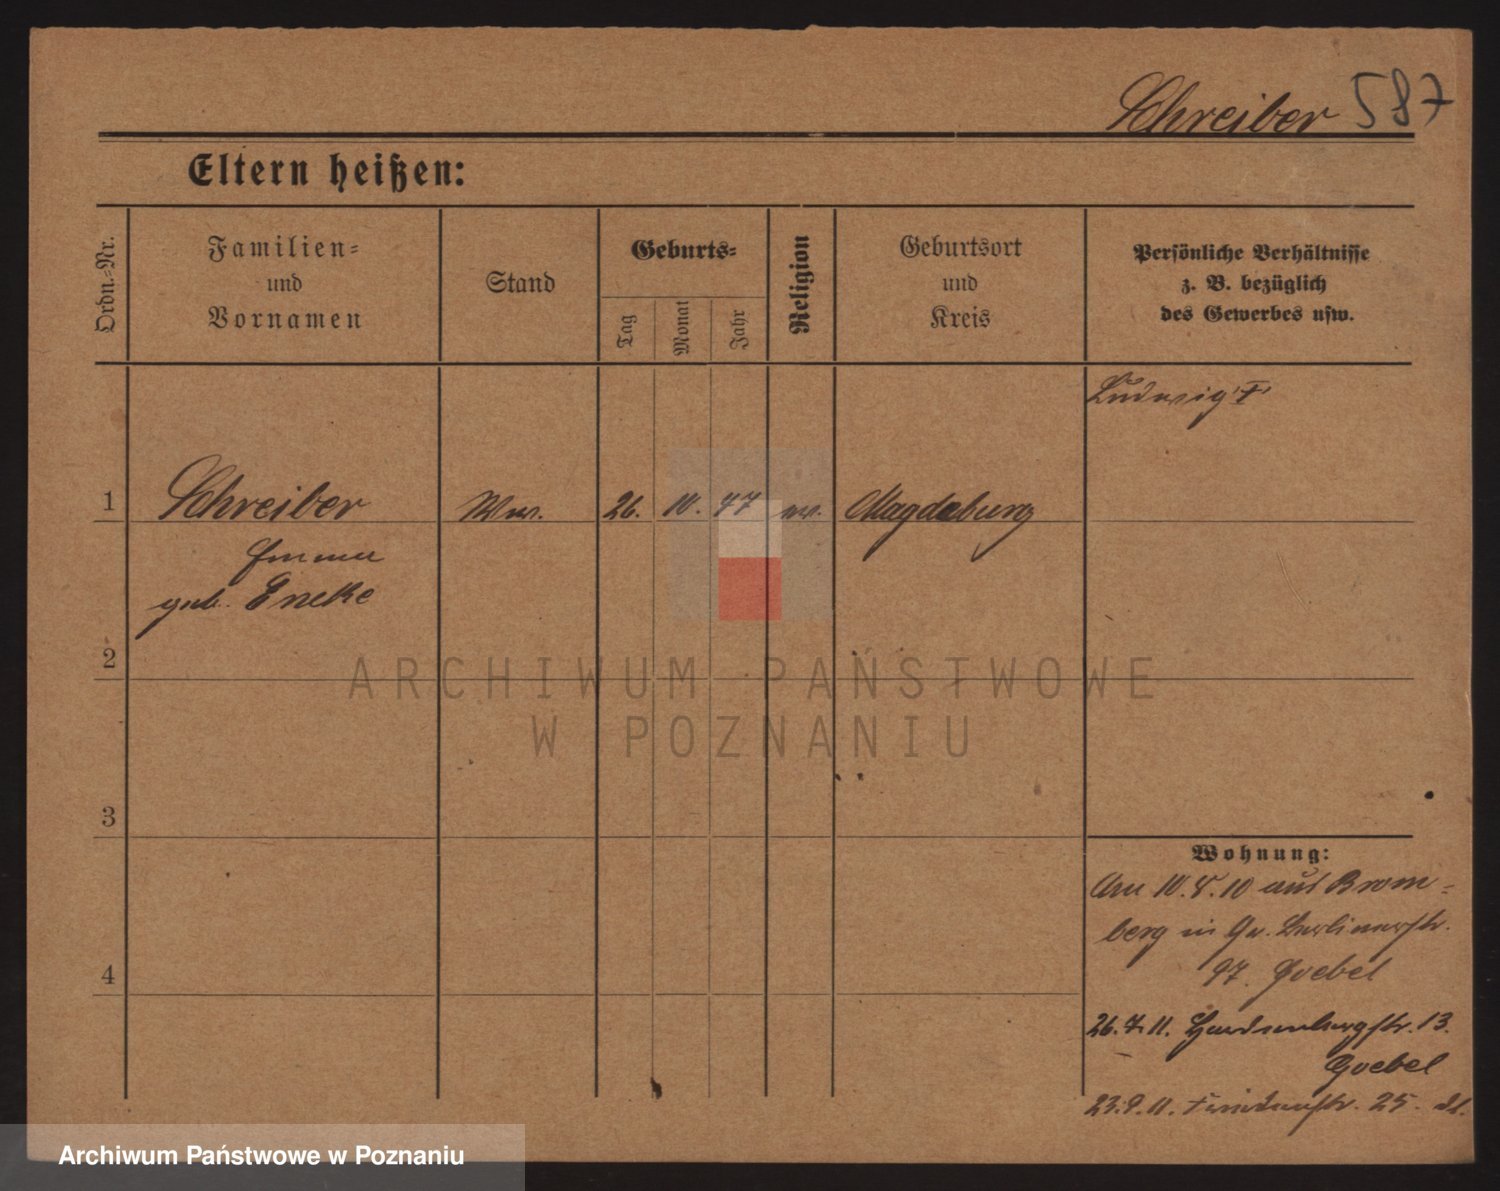 Schreiber 587
Eltern heißen:
Ordn.-Nr.
Familien-
und
Vornamen
Stand
Geburts-
Tag
Monat
Jahr
Religion
Geburtsort
und
Kreis
Persönliche Verhältnisse
z. B. bezüglich
des Gewerbes usw.
Ludwig
1 Schreiber Ww. 26. 10. 47 Magdeburg
Emma
geb. Eneke
2
3
4
Wohnung:
Am 10.5.10 aus Brom-
berg in Gr. Berlinerstr.
97. Goebel
26.7.11. Hardenbergstr. 13.
Goebel
23.9.11. 25.
ARCHIWUM PAŃSTWOWE
W POZNANIU
Archiwum Państwowe w Poznaniu